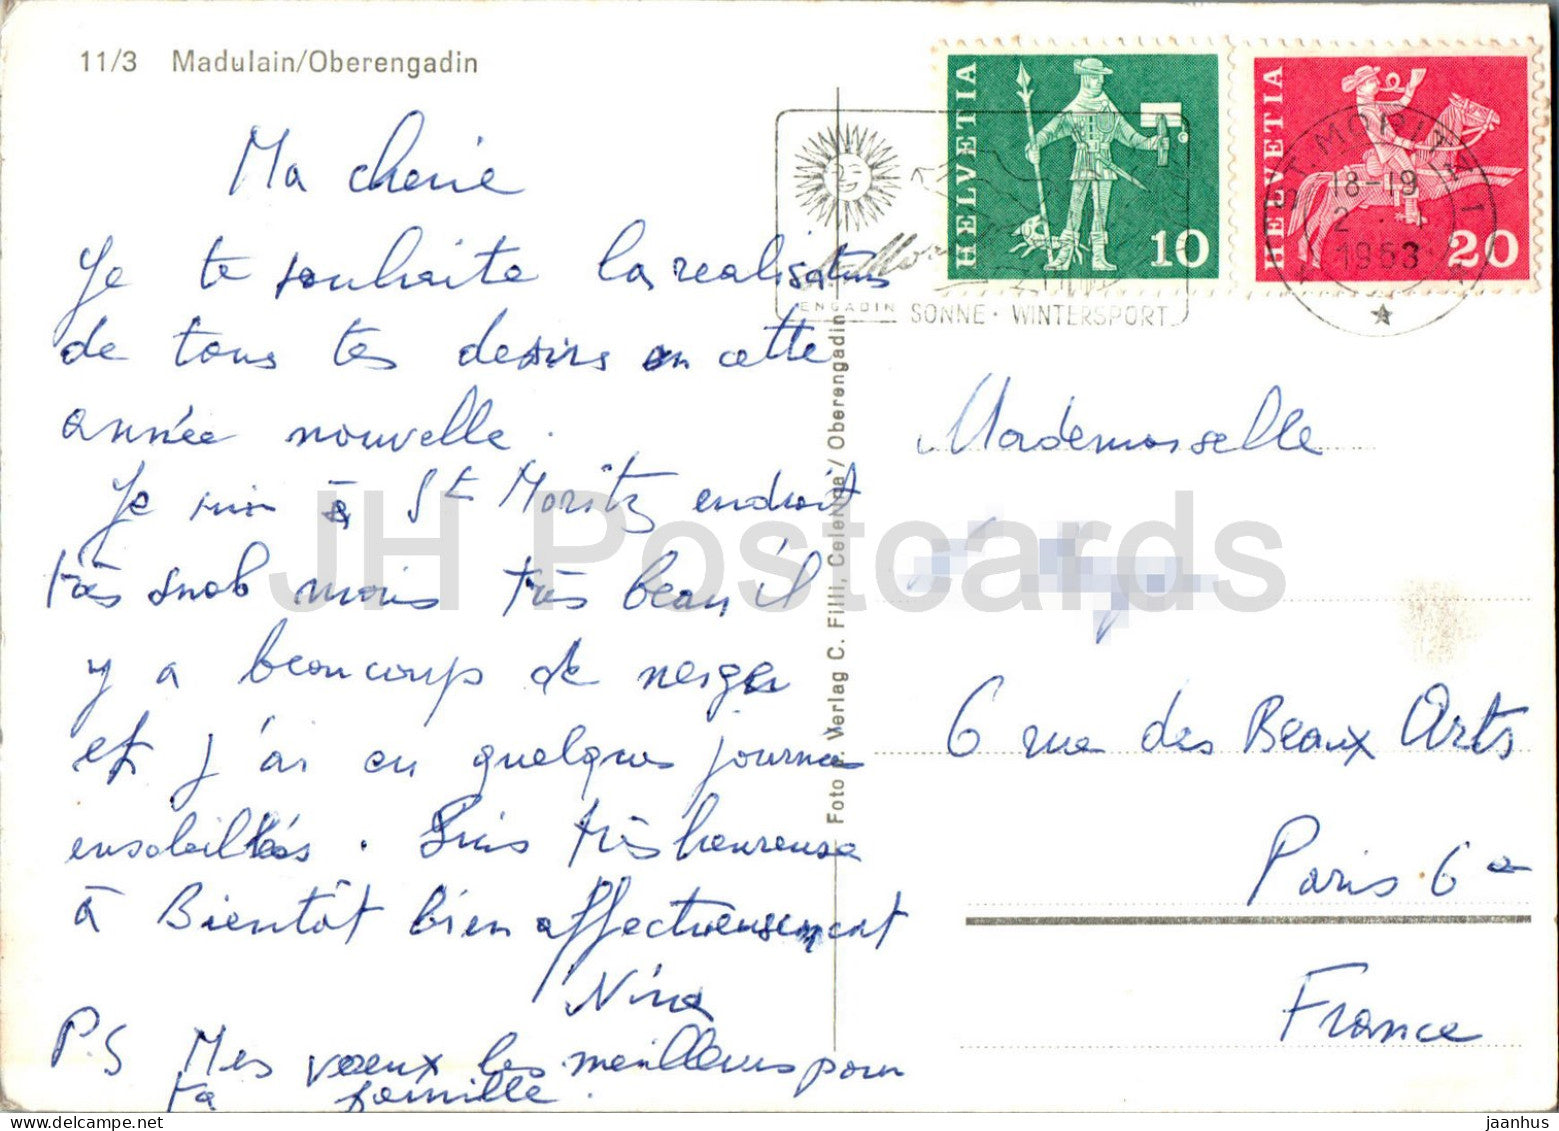 11/3 Madulain/Oberengadin
Ma cherie
Je te souhaite la realisation
de tous tes desirs en cette
année nouvelle.
Je suis à St Moritz endroit
très snob mais très beau il
y a beaucoup de neige
et j'ai eu quelques journees
ensoleillés. Suis très heureuse
à Bientôt bien affectueusement
Nina
P.S Mes voeux les meilleurs pour
ta famille.
Foto u. Verlag C. Filli, Celerina/Oberengadin
ENGADIN SONNE · WINTERSPORT
HELVETIA 10
HELVETIA 20
ST. MORITZ 1
18-19
1963
Mademoiselle
6 rue des Beaux Arts
Paris 6e
France
JH Postcards
www.jaanhus.com